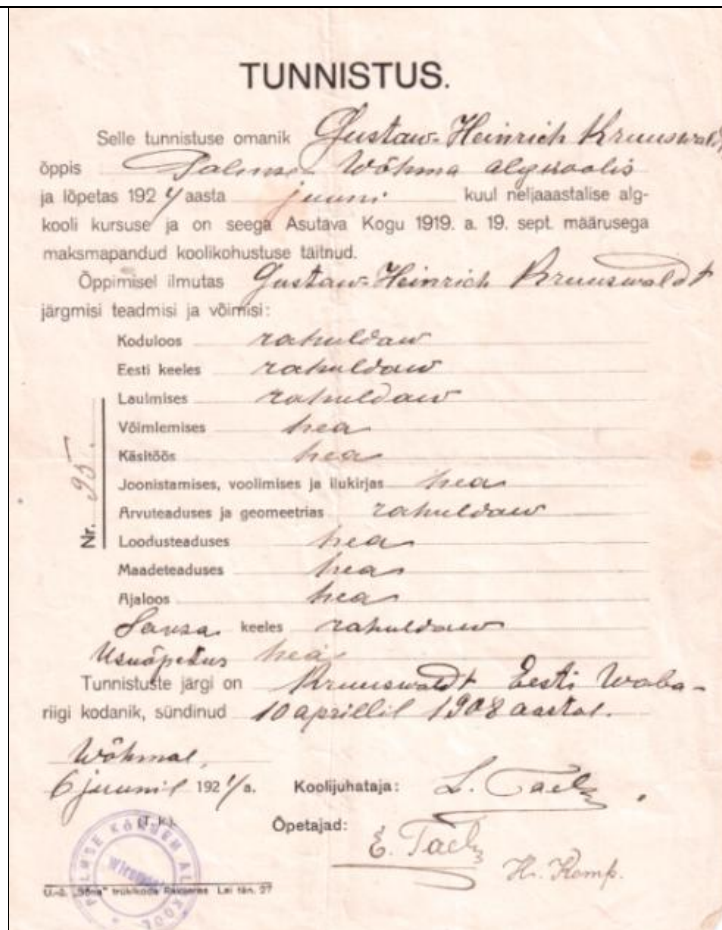 TUNNISTUS.
Selle tunnistuse omanik Gustaw-Heinrich Kruuswaldt
õppis Palmse Wõhma algkoolis
ja lõpetas 1924 aasta juuni kuul neljaaastalise alg-
kooli kursuse ja on seega Asutava Kogu 1919. a. 19. sept. määrusega
maksmapandud koolikohustuse täitnud.
Õppimisel ilmutas Gustaw-Heinrich Kruuswaldt
järgmisi teadmisi ja võimisi:
Koduloos rahuldaw
Eesti keeles rahuldaw
Laulmises rahuldaw
Võimlemises hea
Käsitöös hea
Joonistamises, voolimises ja ilukirjas hea
Arvuteaduses ja geomeetrias rahuldaw
Loodusteaduses hea
Maadeteaduses hea
Ajaloos hea
Saksa keeles rahuldaw
Usuõpetus hea
Nr. 95.
Tunnistuste järgi on Kruuswaldt Eesti Waba-
riigi kodanik, sündinud 10 aprillil 1908 aastal.
Wõhmal,
6 juunil 1924 a. Koolijuhataja: L. Taels
(T. k.) Õpetajad: E. Taels
H. Komp.
PALMSE KÕRGEM ALGKOOL
O.-ü. „Sõna" trükikoda Rakveres Lai tän. 27